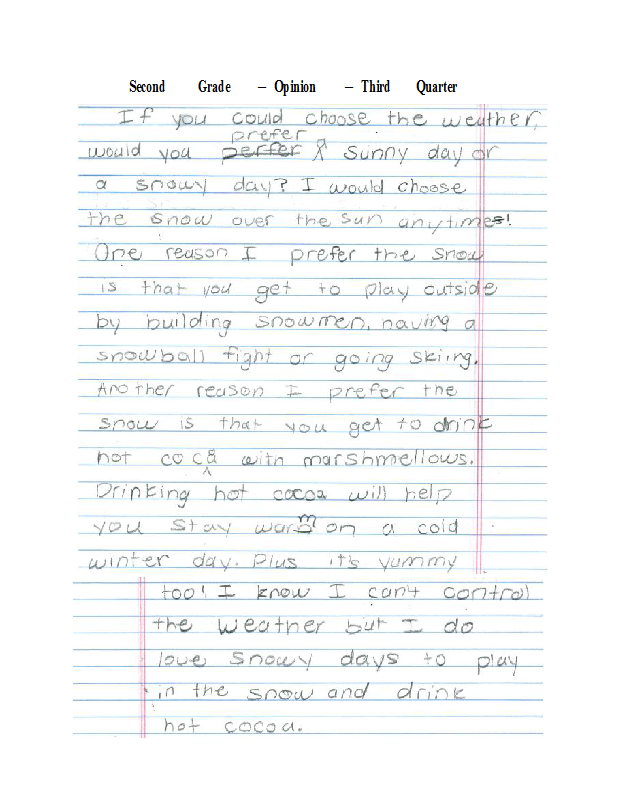 Second Grade – Opinion – Third Quarter
If you could choose the weather,
prefer
would you perfer a sunny day or
a snowy day? I would choose
the snow over the sun anytime!
One reason I prefer the snow
is that you get to play outside
by building snowmen, having a
snowball fight or going skiing.
Another reason I prefer the
snow is that you get to drink
hot cocoa with marshmellows.
Drinking hot cocoa will help
you stay warm on a cold
winter day. Plus it's yummy
too! I know I can't control
the weather but I do
love snowy days to play
in the snow and drink
hot cocoa.